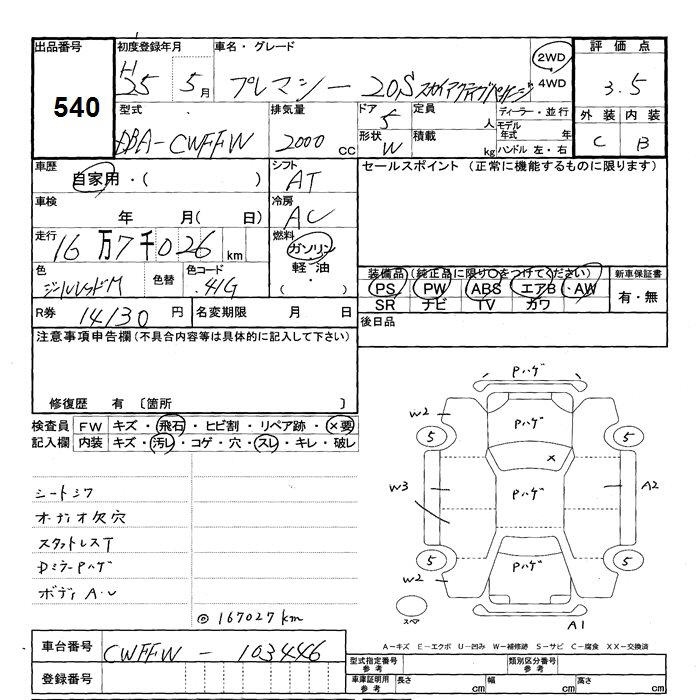 出品番号 初度登録年月 車名・グレード 2WD 評価点
540 H25 5月 プレマシー 20Sスカイアクティブ 4WD 3.5
型式 排気量 ドア 定員 ディーラー・並行 外装 内装
DBA-CWFFW 2000cc 5 人 モデル年式 年 C B
形状 積載 W kg ハンドル 左・右
車歴 シフト セールスポイント (正常に機能するものに限ります)
自家用・( ) AT
車検 冷房
年 月(日) AC
走行 燃料
16万7千026km ガソリン
色 色替 色コード 軽油 装備品(純正品に限り○をつけてください) 新車保証書
41G ( ) PS PW ABS エアB・AW 有・無
SR ナビ TV カワ
R券 14130円 名変期限 月 日 後日品
注意事項申告欄(不具合内容等は具体的に記入して下さい)
修復歴 有 〔箇所 〕
検査員 FW キズ・飛石・ヒビ割・リペア跡・×要
記入欄 内装 キズ・汚レ・コゲ・穴・スレ・キレ・破レ
Pハゲ
W2 Pハゲ
5 5
×
W3 Pハゲ A2
5 Pハゲ 5
W2
スペア A1
シートシワ
オーディオ欠穴
スタットレスT
DミラーPハゲ
ボディA・U
◎167027km
A-キズ E-エクボ U-凹み W-補修跡 S-サビ C-腐食 XX-交換済
車台番号 CWFFW - 103446
登録番号
型式指定番号 参考 類別区分番号 参考
車庫証明用 参考 長さ cm 幅 cm 高さ cm